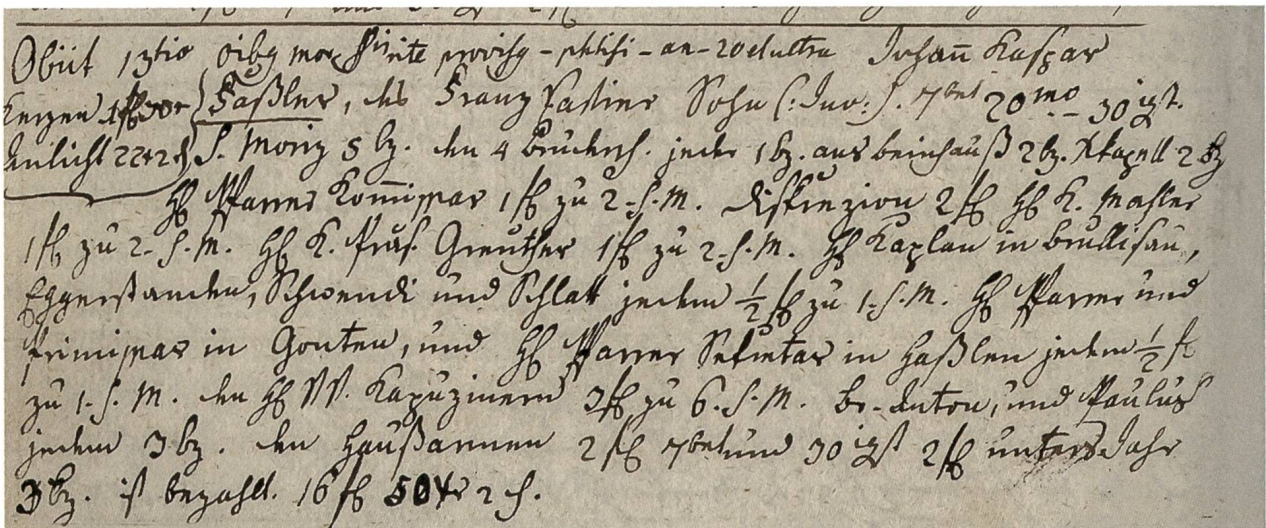 Obiit 13tio 8ibg mor rite provisq - phtisi - an - 20 et ultra Johan̄ Kaspar
Kerzen 1 fl 30 xr Faßler, des Franz Sohn (: Inv :) . 7bet 20mo - 30igst.
22 x 2 d S. Moriz 5 bz. den 4 Brudersch. jeder 1 bz. ans beinhauß 2 bz. Xkapell 2 bz
HH Pfarrer Kom̄issar 1 fl zu 2 - h. M. diskrezion 2 fl HH K. Mahler
1 fl zu 2 - h. M. HH K. Präf. Greuther 1 fl zu 2 - h. M. HH Kaplan in Brüllisau,
Eggerstanden, Schwendi und Schlatt jedem ½ fl zu 1 - h. M. HH Pfarrer und
Primissar in Gonten, und HH Pfarrer Sekretar in Haßlen jedem ½ fl
zu 1 - h. M. den HH VV. Kapuzinern 3 fl zu 6 - h. M. br. Anton, und Paulus
jedem 3 bz. den Haußarmen 2 fl 7bet und 30igst 2 fl unters Jahr
3 bz. ist bezahlt. 16 fl 50 xr 2 d.